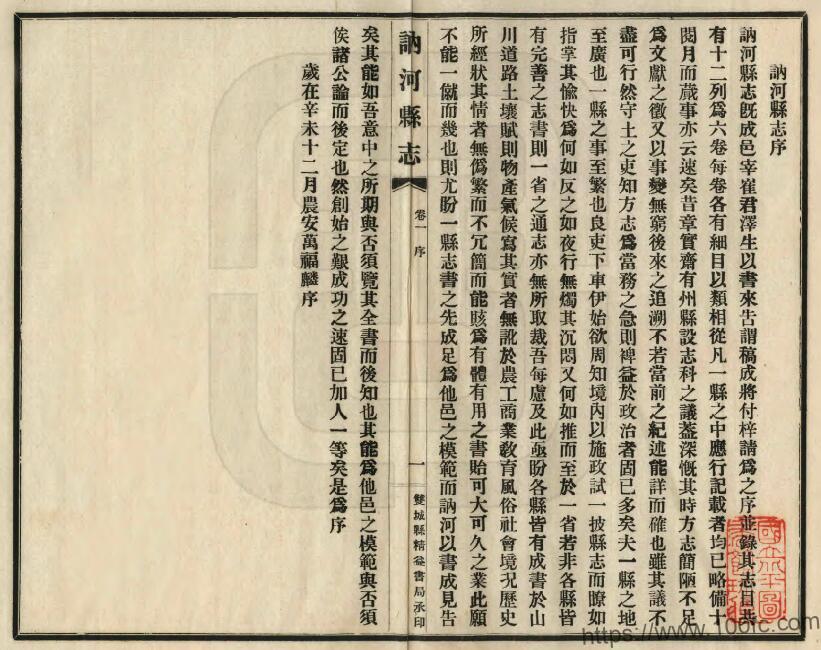 訥河縣志序
訥河縣志既成邑宰崔君澤生以書來告謂稿成將付梓請爲之序並錄其志目共
有十二列爲六卷每卷各有細目以類相從凡一縣之中應行記載者均已略備十
閱月而蕆事亦云速矣昔章實齋有州縣設志科之議蓋深慨其時方志簡陋不足
爲文獻之徵又以事變無窮後來之追溯不若當前之紀述能詳而確也雖其議不
盡可行然守土之吏知方志爲當務之急則裨益於政治者固已多矣夫一縣之地
至廣也一縣之事至繁也良吏下車伊始欲周知境內以施政試一披縣志而瞭如
指掌其愉快爲何如反之如夜行無燭其沉悶又何如推而至於一省若非各縣皆
有完善之志書則一省之通志亦無所取裁吾每慮及此亟盼各縣皆有成書於山
川道路土壤賦則物產氣候寫其實者無訛於農工商業敎育風俗社會境况歷史
所經狀其情者無僞繁而不冗簡而能賅爲有體有用之書貽可大可久之業此願
不能一蹴而幾也則尤盼一縣志書之先成足爲他邑之模範而訥河以書成見告
訥河縣志
卷一 序
一
雙城縣精益書局承印
矣其能如吾意中之所期與否須覽其全書而後知也其能爲他邑之模範與否須
俟諸公論而後定也然創始之艱成功之速固已加人一等矣是爲序
歲在辛未十二月農安萬福麟序
https://www.100fc.com